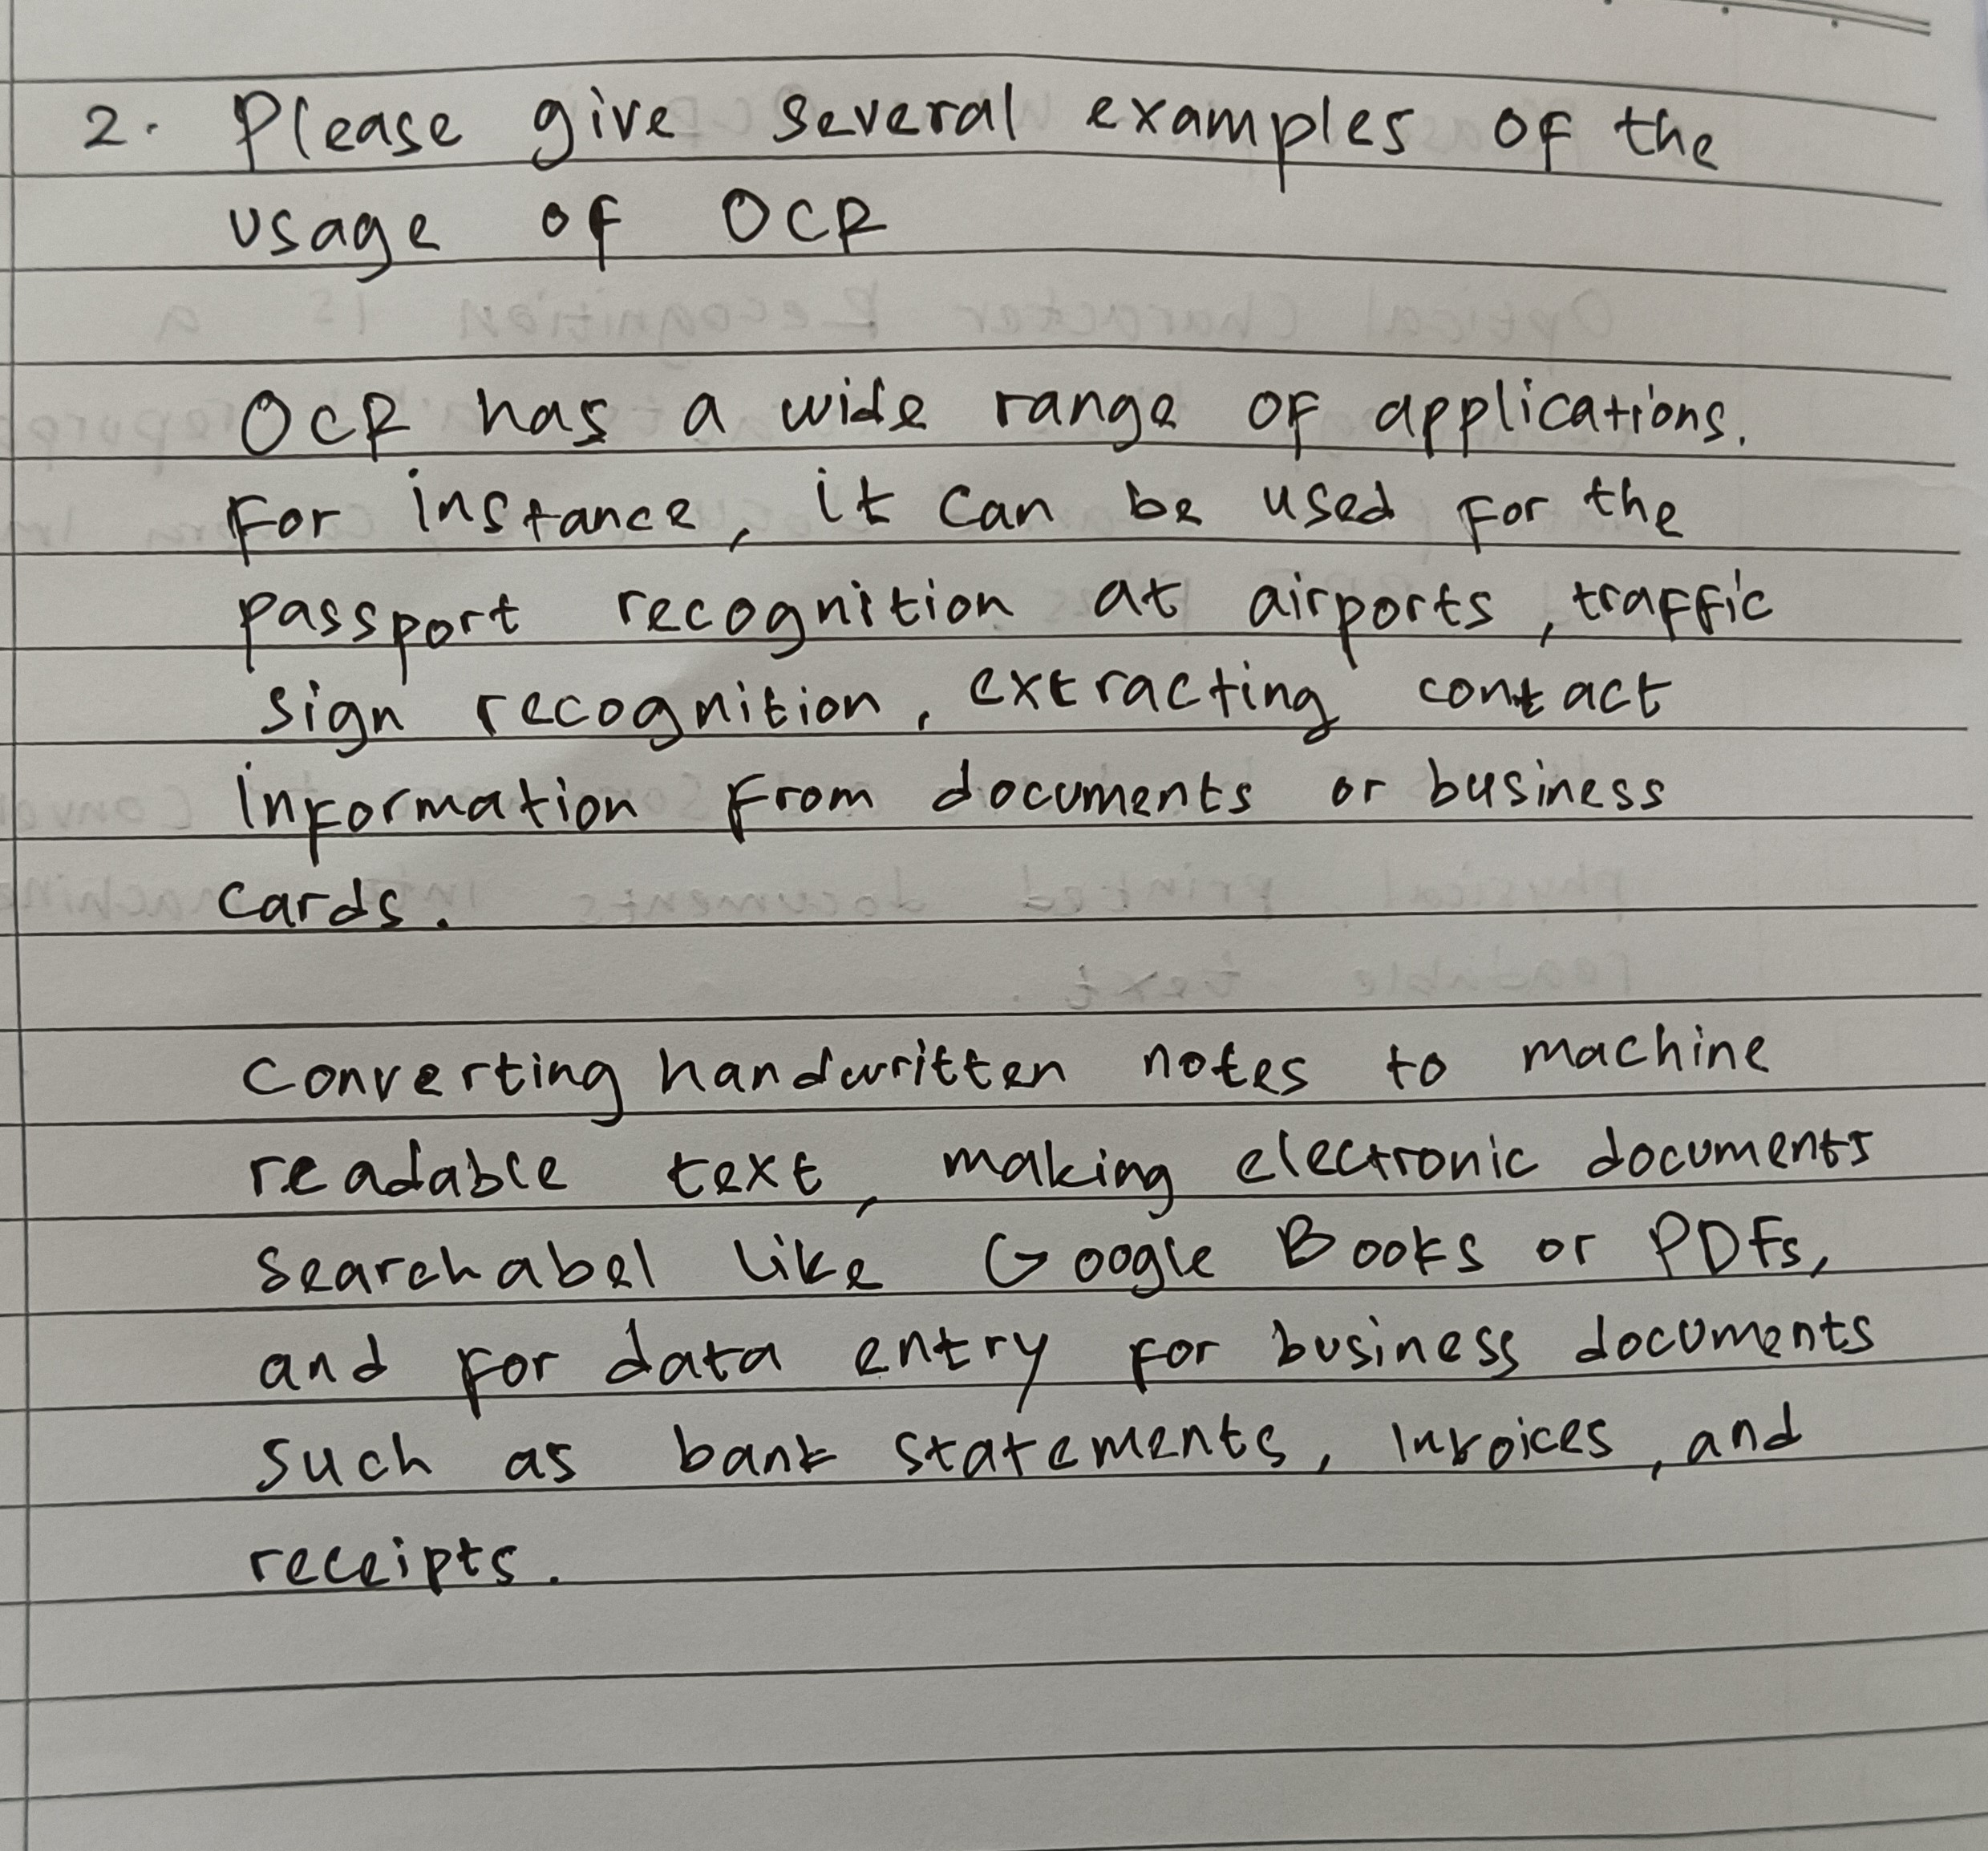 2. Please give several examples of the
usage of OCR
OCR has a wide range of applications.
For instance, it can be used for the
passport recognition at airports, traffic
sign recognition, extracting contact
information from documents or business
cards.
Converting handwritten notes to machine
readable text, making electronic documents
searchabel like Google Books or PDFs,
and for data entry for business documents
such as bank statements, invoices, and
receipts.